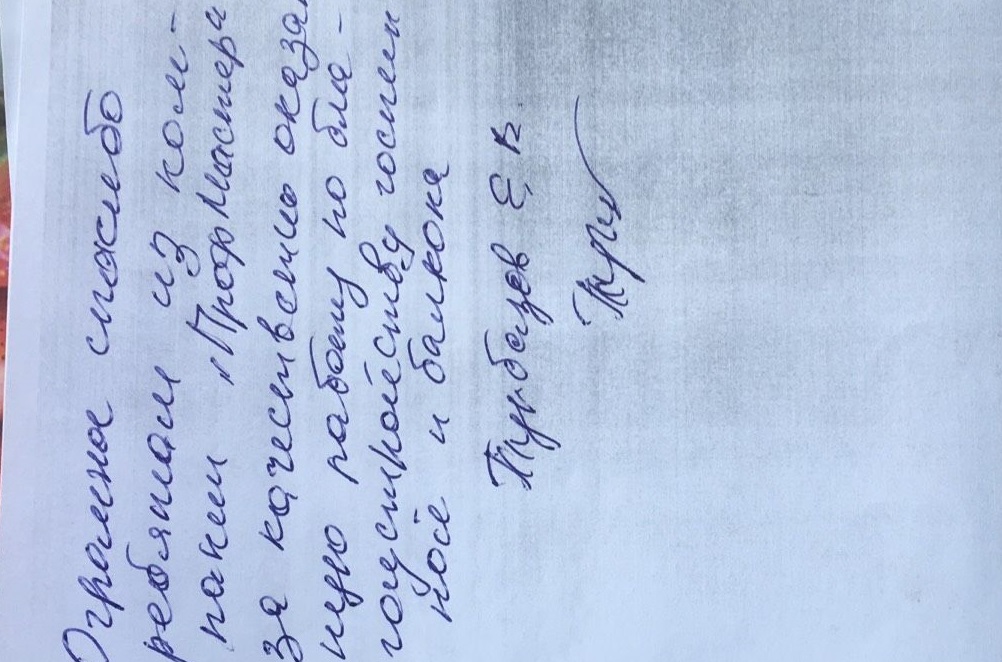 Огромное спасибо
ребятам из ком-
пании "ПрофМастера
за качественно оказан
ную работу по бла-
гоустройству гостин
ной и балкона
Турбазев Е. В